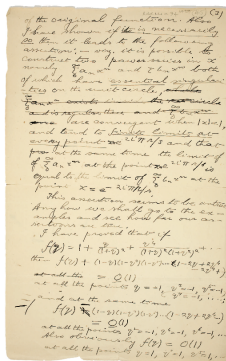 (3)
of the original function. Also
I have shown if this is necessarily
so then it leads to the following
assertion:— viz. it is possible to
construct two power series in x
namely Σ aₙxⁿ and Σ bₙxⁿ both
of which have essential singulari-
ties on the unit circle,
are convergent when |x|<1
and tend to finite limits at
every point x = e^{2iπr/s} and that
at the same time the limit of
of Σ aₙxⁿ at the point x = e^{2iπr/s} is
equal to the limit of Σ bₙxⁿ at the
point x = e^{-2iπr/s}
This assertion seems to be untrue
Any how we shall go to the ex-
amples and see how far our as-
sertions are true
I have proved that if
f(q) = 1 + q/(1+q)² + q⁴/(1+q)²(1+q²)² + ...
then f(q) + (1-q)(1-q³)(1-q⁵)...(1-2q+2q⁴-...)
= O(1)
at all the points q = -1, q³ = -1, q⁵ = -1, ...
and at the same time
f(q) - (1-q)(1-q³)(1-q⁵)...(1-2q+2q⁴-...)
= O(1)
at all the points q² = -1, q⁴ = -1, q⁶ = -1, ...
Also obviously f(q) = O(1)
at all the points q = 1, q³ = 1, q⁵ = 1, ...